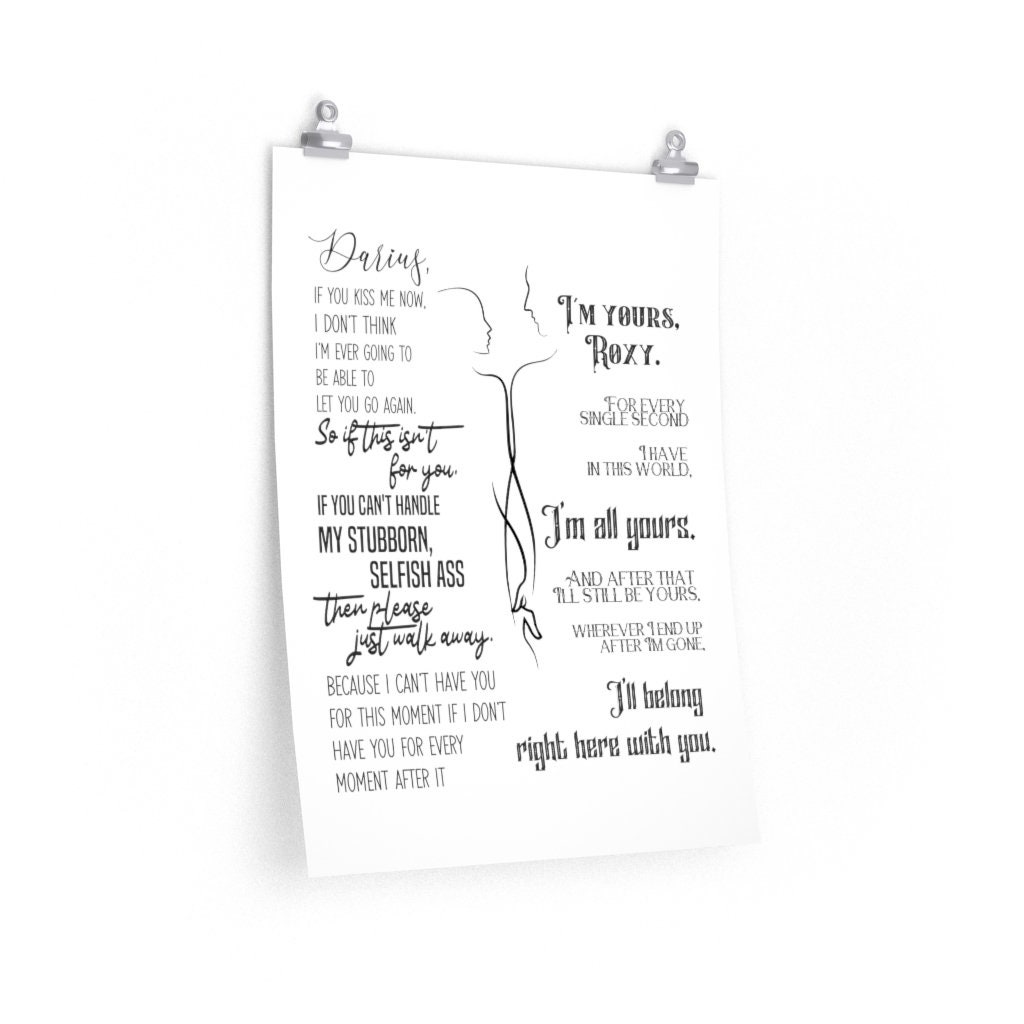 Darius,
IF YOU KISS ME NOW,
I DON'T THINK
I'M EVER GOING TO
BE ABLE TO
LET YOU GO AGAIN.
So if this isn't
for you.
IF YOU CAN'T HANDLE
MY STUBBORN,
SELFISH ASS
then please
just walk away.
BECAUSE I CAN'T HAVE YOU
FOR THIS MOMENT IF I DON'T
HAVE YOU FOR EVERY
MOMENT AFTER IT
I'M YOURS,
ROXY.
FOR EVERY
SINGLE SECOND
I HAVE
IN THIS WORLD,
I'm all yours.
AND AFTER THAT
I'LL STILL BE YOURS,
WHEREVER I END UP
AFTER I'M GONE,
I'll belong
right here with you.